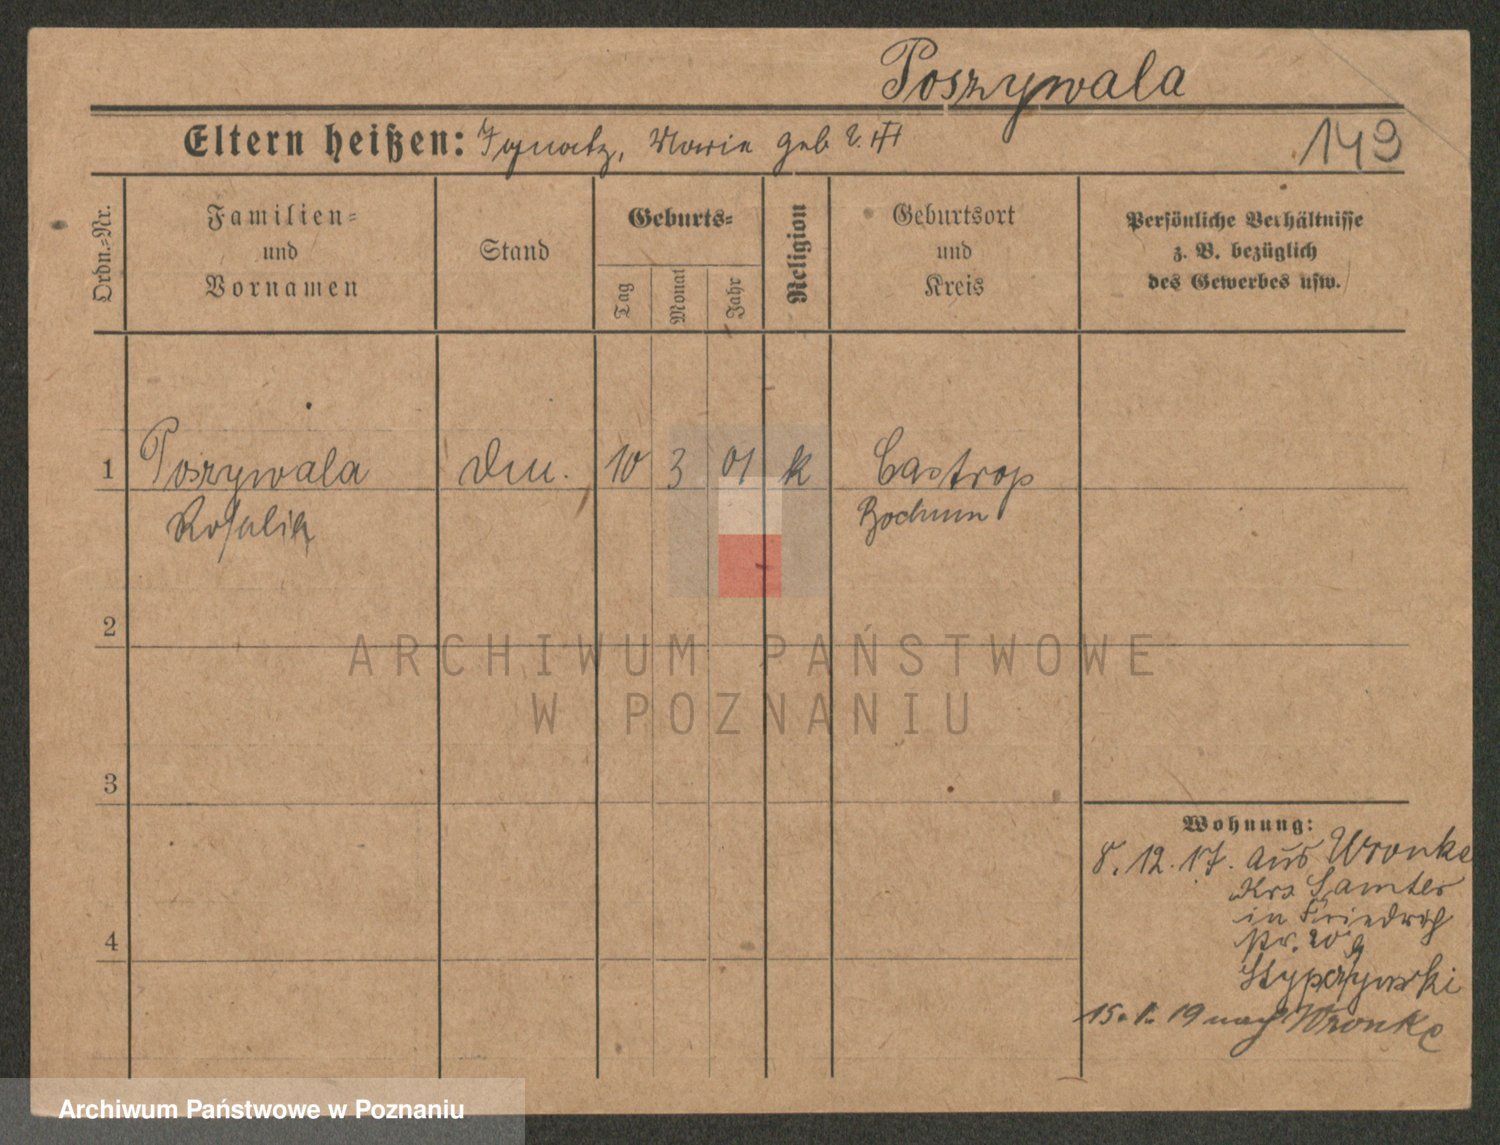 Poszywala
Eltern heißen: Ignatz, Marie geb
149
Ordn.-Nr.
Familien-
und
Vornamen
Stand
Geburts-
Tag
Monat
Jahr
Religion
Geburtsort
und
Kreis
Persönliche Verhältnisse
z. B. bezüglich
des Gewerbes usw.
1 Poszywala 10 3 01 k Castrop
Rosalie Bochum
2
ARCHIWUM PAŃSTWOWE
W POZNANIU
3
Wohnung:
8.12.17. aus Wronke
Krs Samter
in
Nr. 20
15. 19 nach Wronke
4
Archiwum Państwowe w Poznaniu